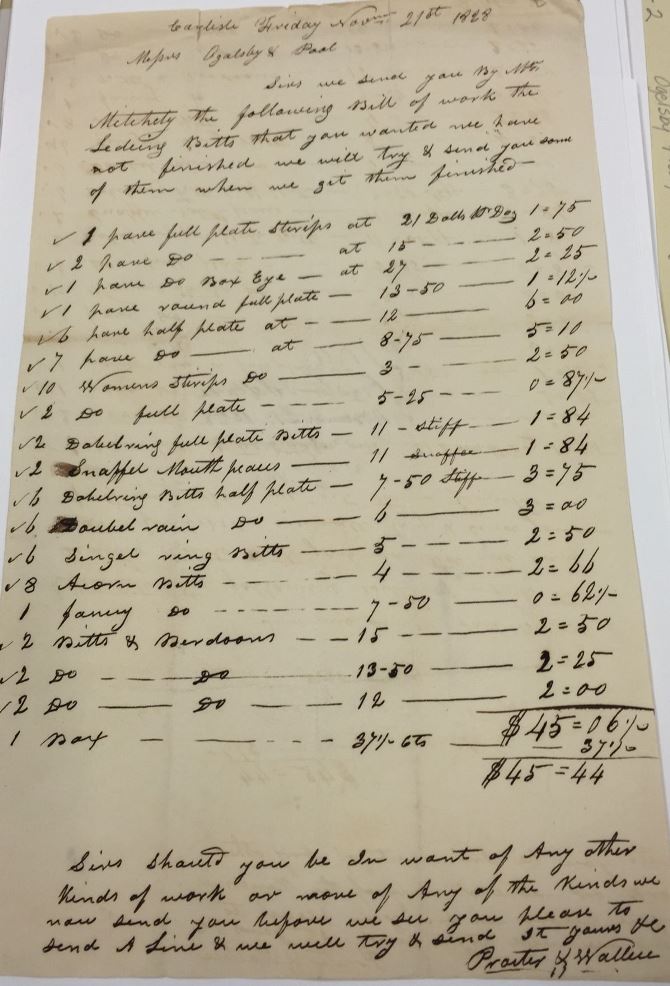 Carlisle Friday Novm 21st 1828
Messrs Ogalsby & Pool
Sirs we send you By Mr
Mitchely the following Bill of work the
Ledeing Bitts that you wanted we have
not finished we will try & send you some
of them when we get them finished
✓ 1 pare full plate Stirips at 21 Dolls Pr Doz 1=75
✓ 2 pare Do - - - - at 15 - - - - 2=50
✓ 1 pare Do Box Eye — at 27 - - - - 2=25
✓ 1 pare round full plate — 13-50 — 1=12½
✓ 6 pare half plate at — 12 — 6=00
✓ 7 pare Do — at 8-75 — 5=10
✓ 10 Womens Stirips Do — 3 - - - - 2=50
✓ 2 Do full plate - - - - 5-25 - - - - 0=87½
✓ 2 Dobelring full plate Bitts — 11 - Stiff — 1=84
✓ 2 Snaffel Mouth peaces — 11 Snaffee — 1=84
✓ 6 Dobelring Bitts half plate — 7-50 Stiff — 3=75
✓ 6 Doubel rain Do — 6 — 3=00
✓ 6 Singel ring Bitts — 5 - - - - 2=50
✓ 8 Acorn Bitts - - - - 4 - - - - 2=66
1 fancy Do - - - - 7-50 — 0=62½
✓ 2 Bitts & Berdoons - - - 15 - - - - 2=50
✓ 2 Do — Do — 13-50 — 2=25
✓ 2 Do — Do — 12 — 2=00
$45=06½
1 Box — - - - - 37½ cts — 37½
$45=44
Sirs Should you be In want of Any other
Kinds of work or more of Any of the Kinds we
now send you before we see you please to
send A Line & we will try & send It yours &c
Procter & Wallace